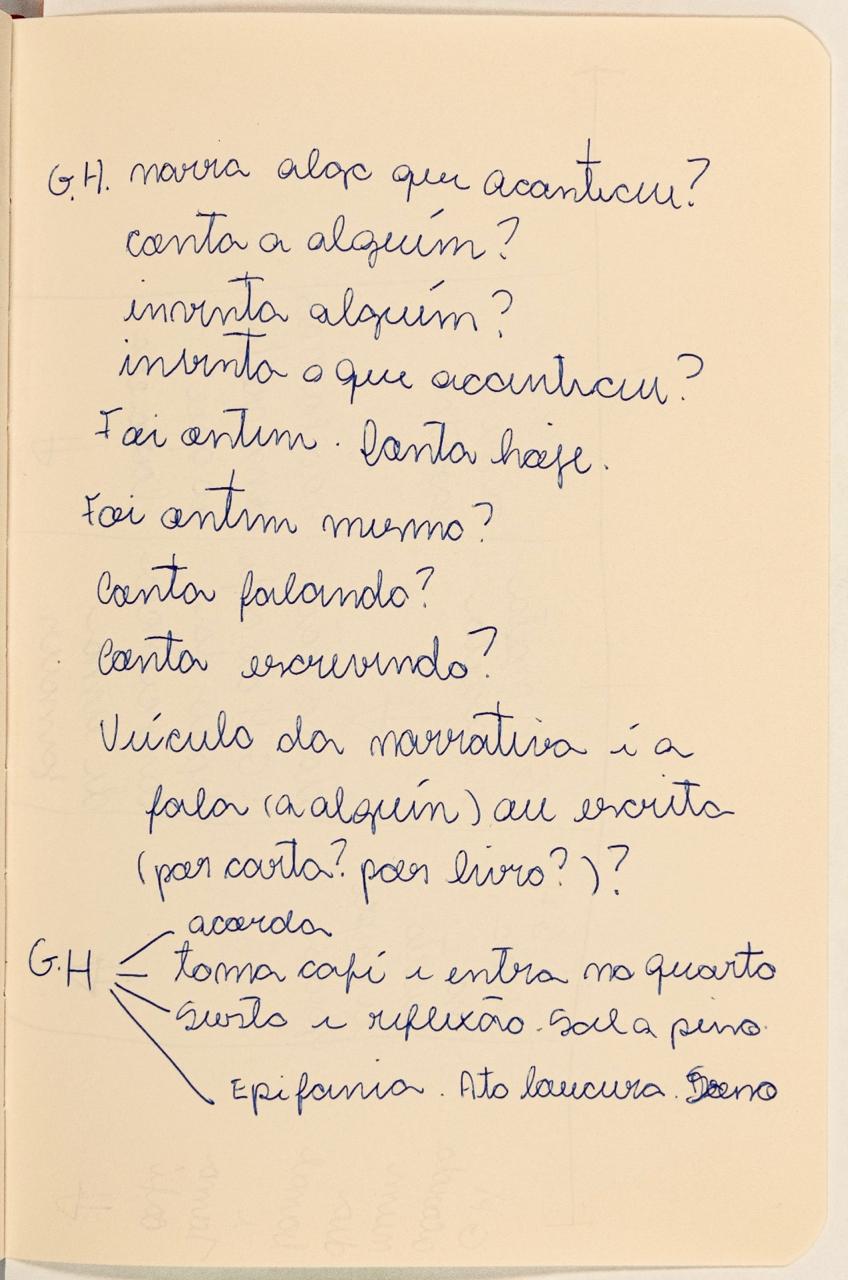 G.H. narra algo que aconteceu?
conta a alguém?
inventa alguém?
inventa o que aconteceu?
Foi ontem. Conta hoje.
Foi ontem mesmo?
Conta falando?
Conta escrevendo?
Veículo da narrativa é a
fala (a alguém) ou escrita
(por carta? por livro?)?
acorda
G.H toma café e entra no quarto
Susto e reflexão. Sol a pino.
Epifania. Ato loucura. Sono